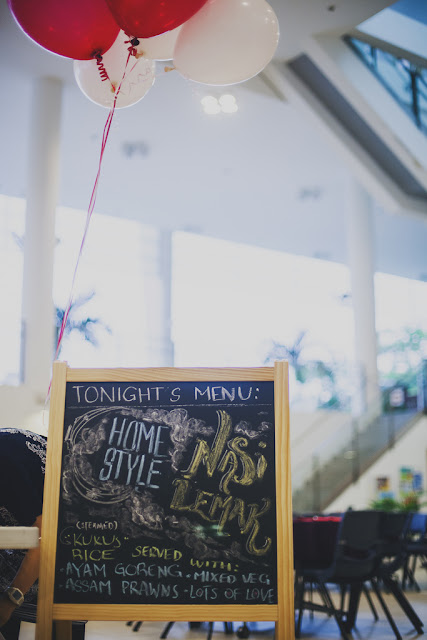 TONIGHT'S MENU:
HOME
STYLE
NASi
LEMAK
(STEAMED)
"KUKUS"
RICE SERVED WITH:
-AYAM GORENG -MIXED VEG
-ASSAM PRAWNS -LOTS OF LOVE